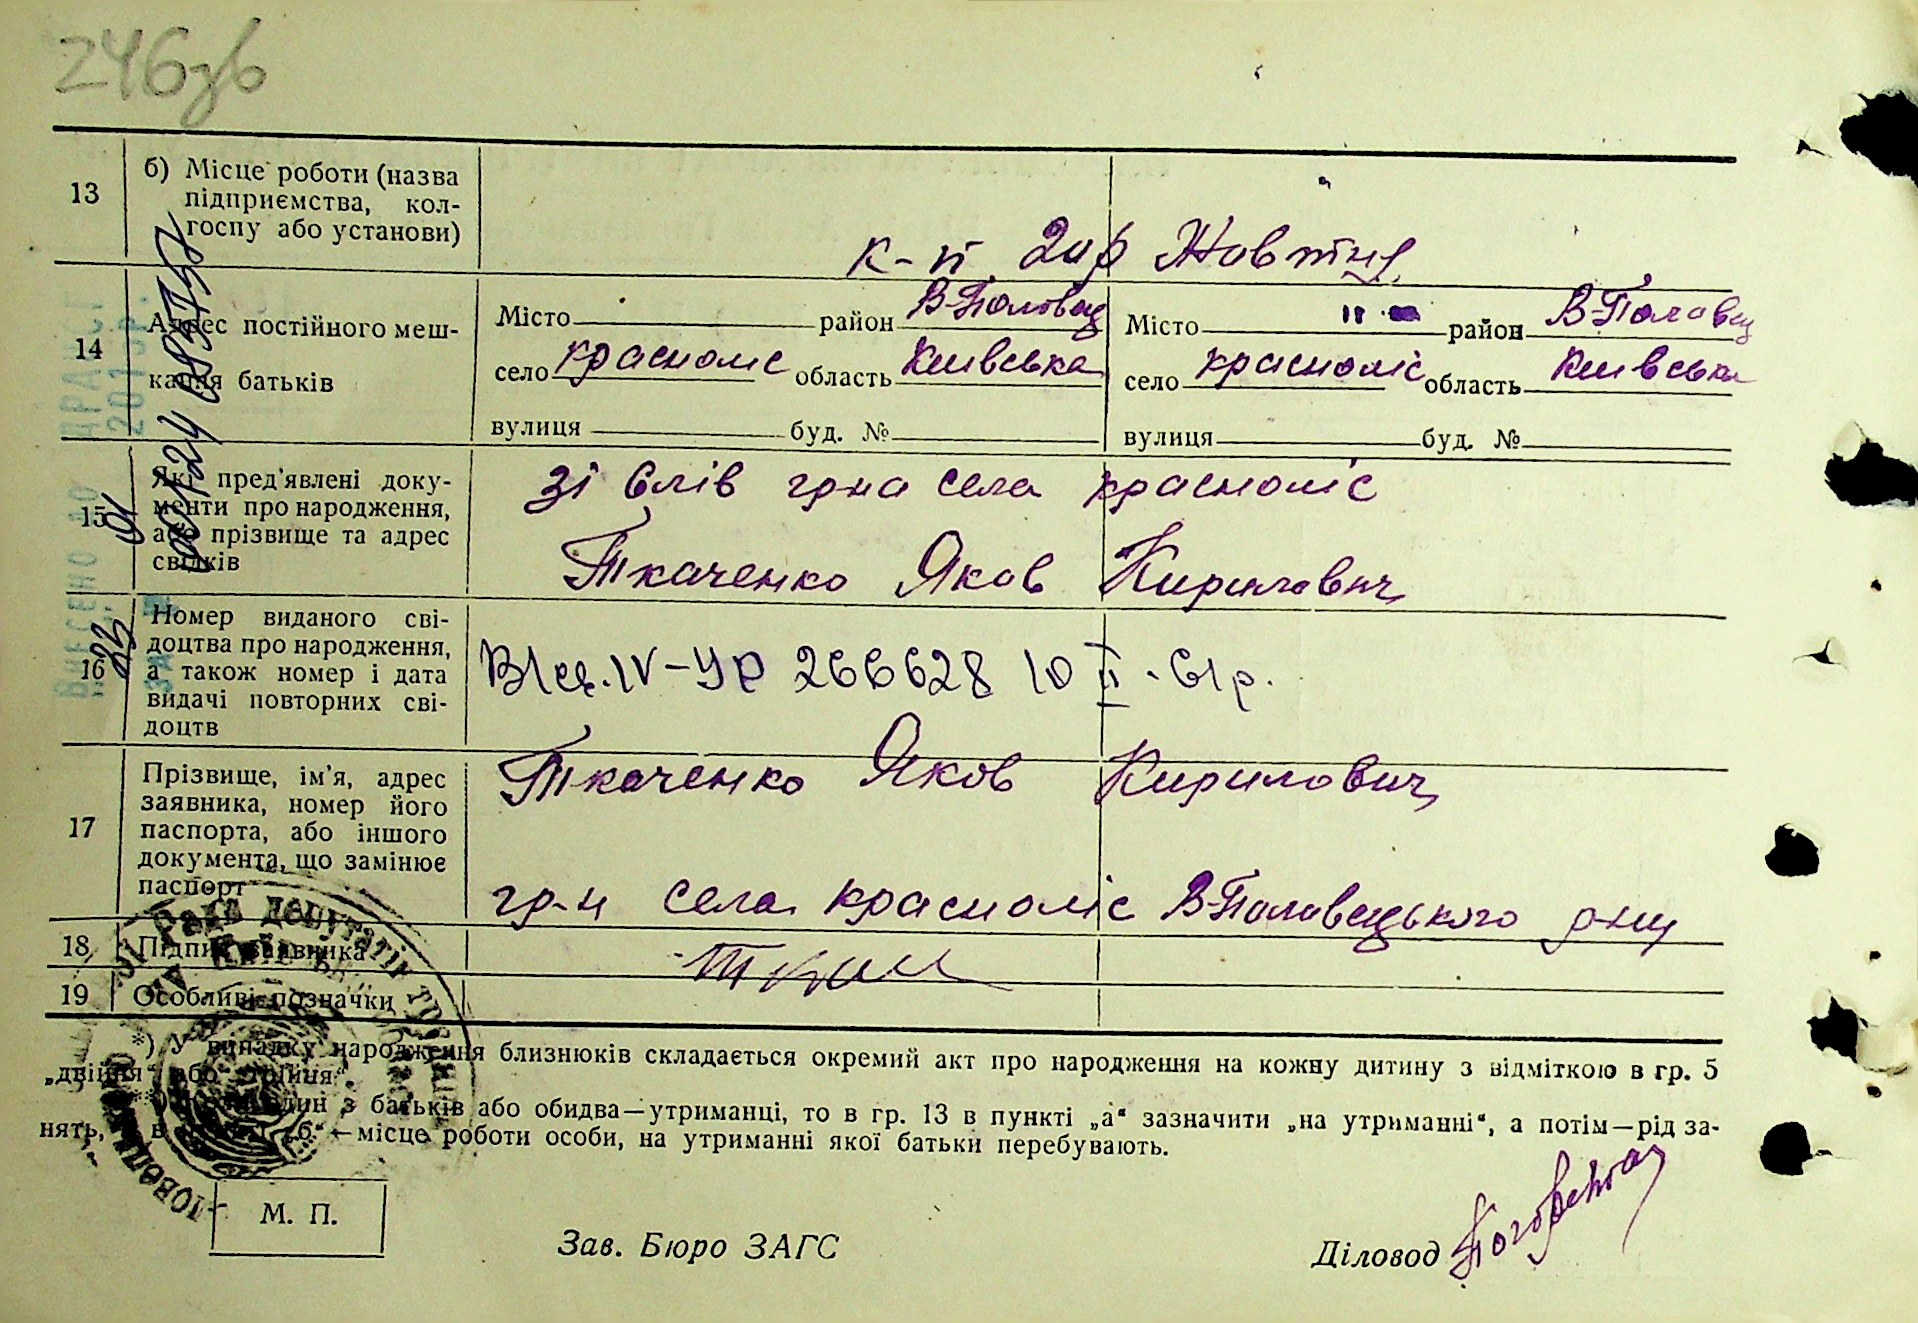 246зв
13 б) Місце роботи (назва
підприємства, кол-
госпу або установи)
к-п 20 р Жовтня
14 Адрес постійного меш-
кання батьків
Місто район В-Половец Місто район В-Половец
село красноліс область Київська село красноліс область Київська
вулиця буд. № вулиця буд. №
15 Які пред'явлені доку-
менти про народження,
або прізвище та адрес
свідків
зі слів гр-на села красноліс
Ткаченко Яков Кирилович
16 Номер виданого сві-
доцтва про народження,
а також номер і дата
видачі повторних сві-
доцтв
IV-УР 266628 10 II 61р.
17 Прізвище, ім'я, адрес
заявника, номер його
паспорта, або іншого
документа, що замінює
паспорт
Ткаченко Яков Кирилович
гр-н села красноліс В-Половецького р-ну
18 Підпис заявника
19 Особливі позначки
*) У випадку народження близнюків складається окремий акт про народження на кожну дитину з відміткою в гр. 5
„двійня“ або „трійня“.
один з батьків або обидва—утриманці, то в гр. 13 в пункті „а“ зазначити „на утриманні“, а потім—рід за-
нять, „б“—місце роботи особи, на утриманні якої батьки перебувають.
М. П.
Зав. Бюро ЗАГС
Діловод